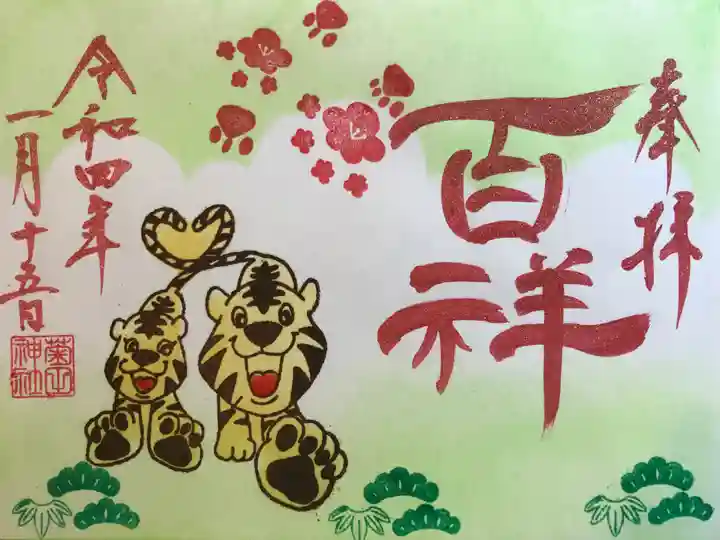 奉拝
百祥
令和四年
一月十五日
菊田
神社